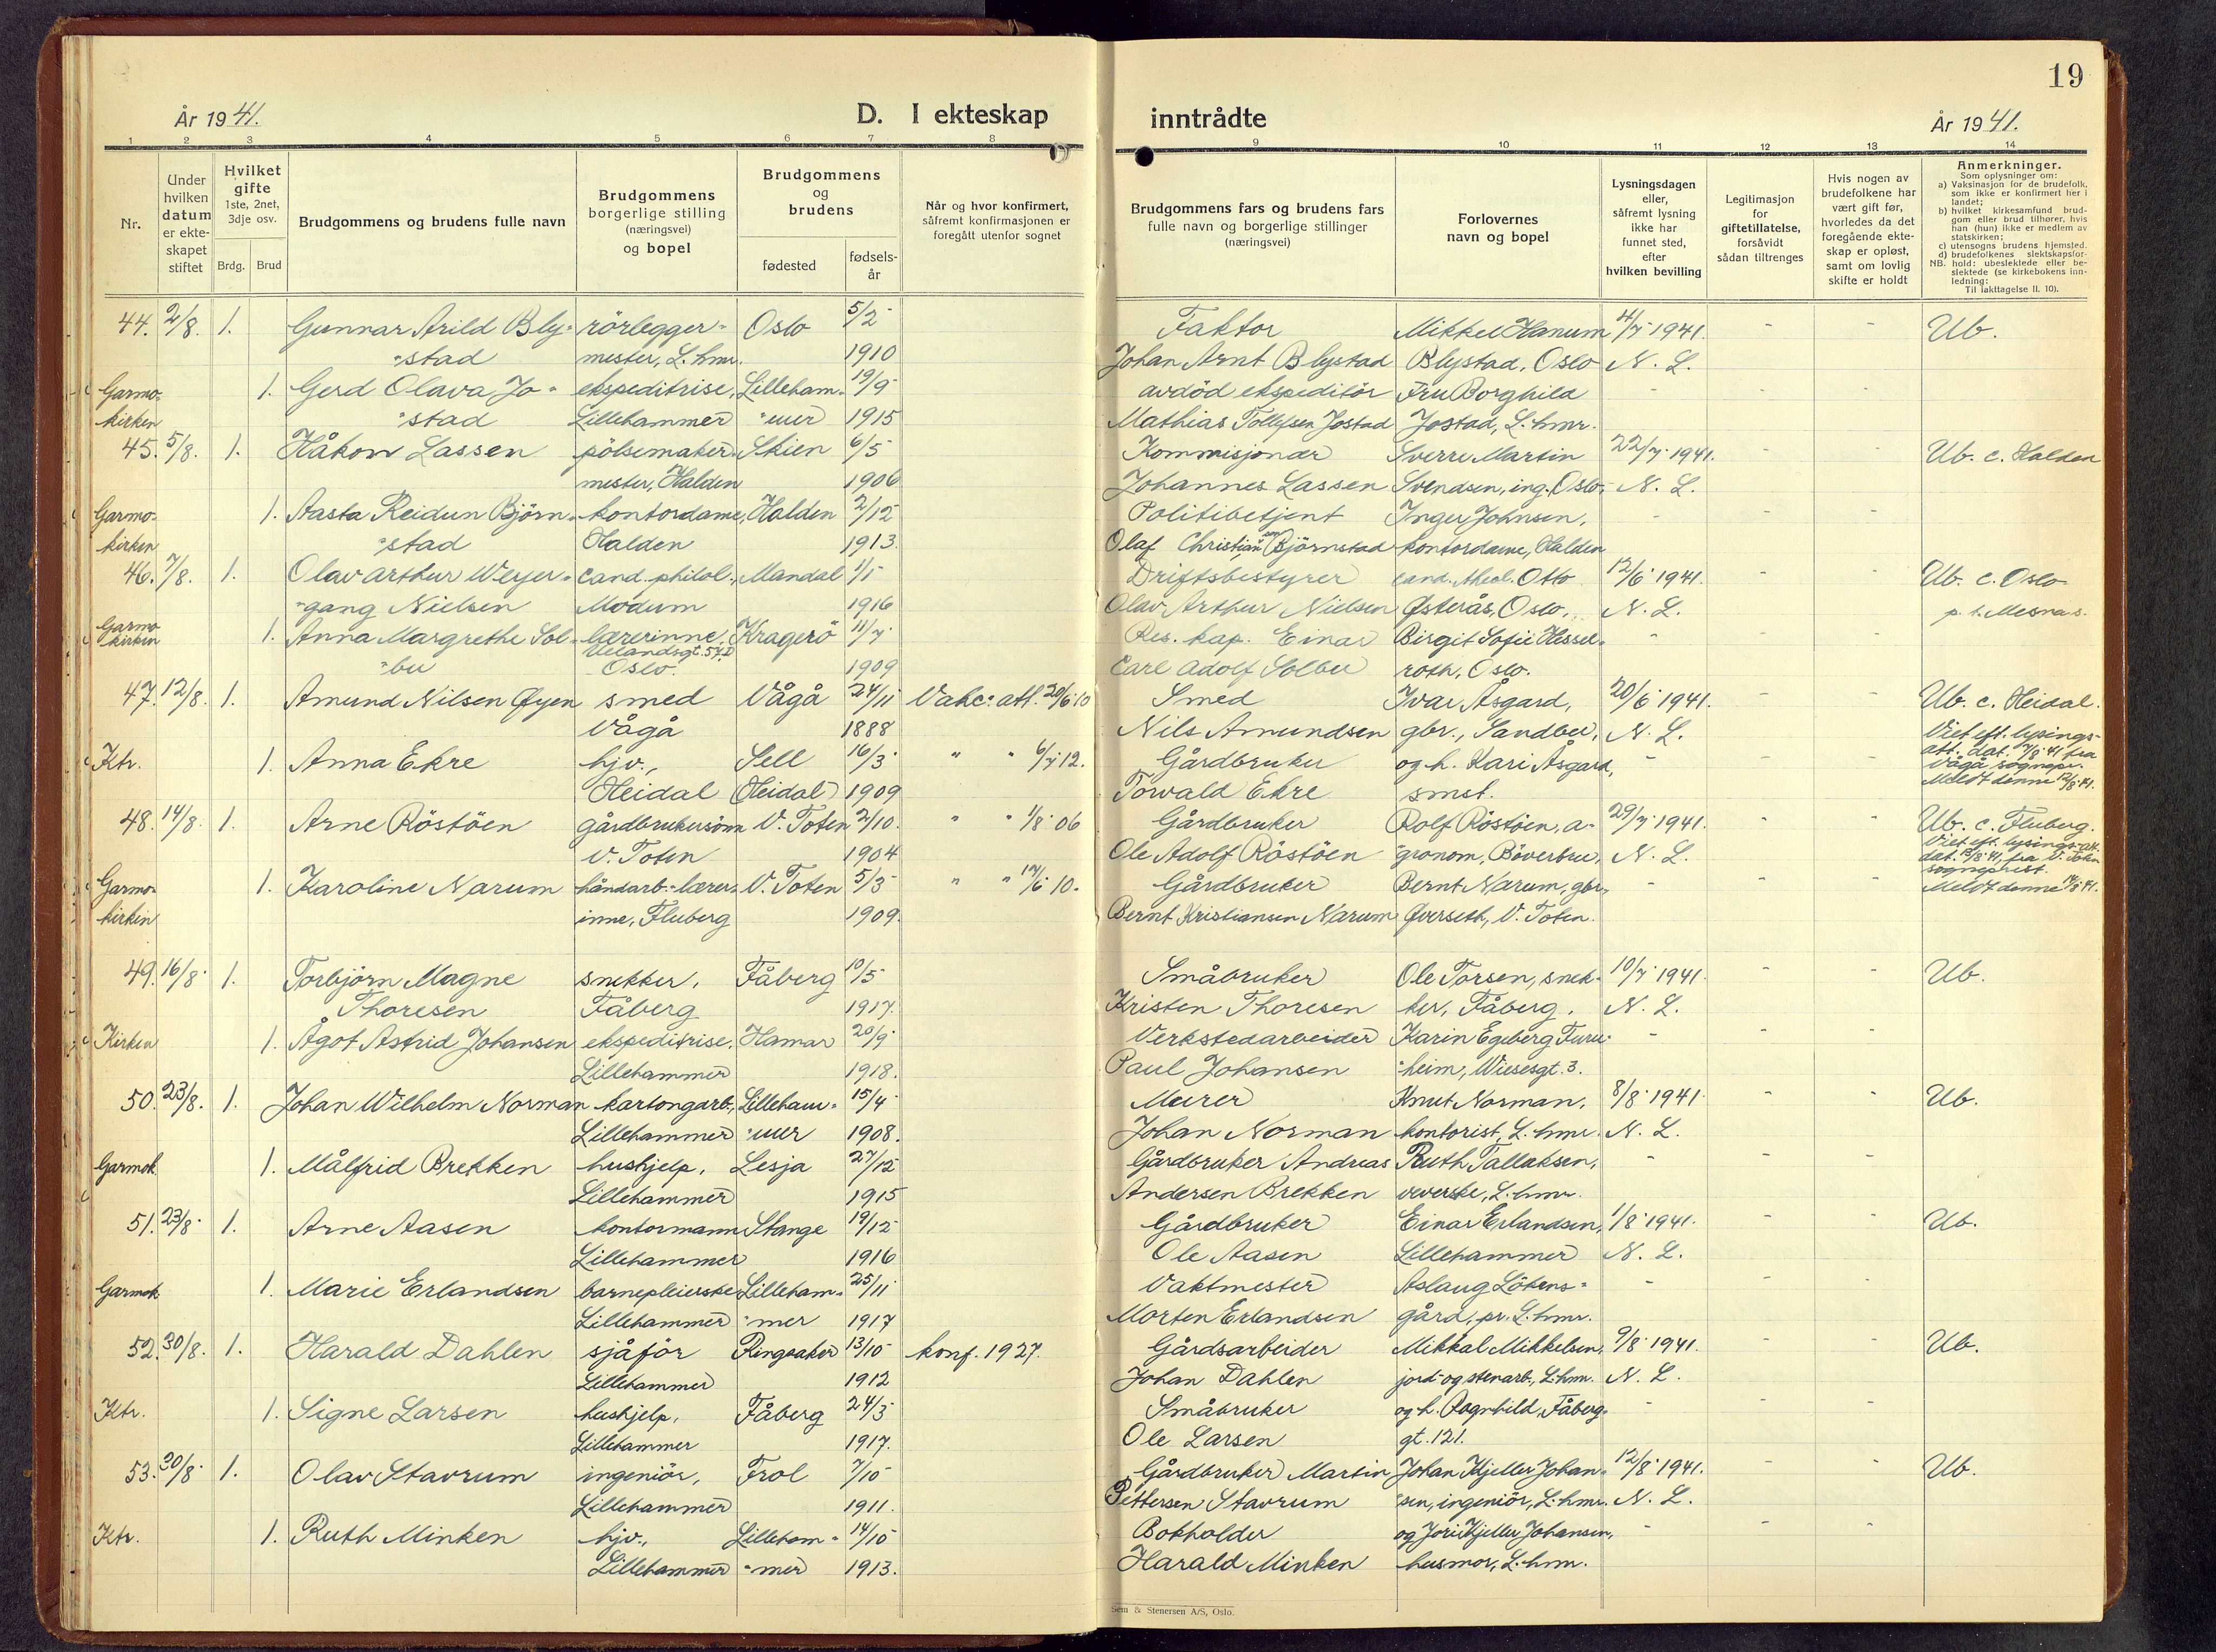 19
År 1941.
D. I ekteskap
inntrådte
År 1941.
1 2 3 4 5 6 7 8 9 10 11 12 13 14
Nr.
Under hvilken datum er ekteskapet stiftet
Hvilket gifte 1ste, 2net, 3dje osv.
Brdg. Brud
Brudgommens og brudens fulle navn
Brudgommens borgerlige stilling (næringsvei) og bopel
Brudgommens og brudens
fødested
fødsels-år
Når og hvor konfirmert, såfremt konfirmasjonen er foregått utenfor sognet
Brudgommens fars og brudens fars fulle navn og borgerlige stillinger (næringsvei)
Forlovernes navn og bopel
Lysningsdagen eller, såfremt lysning ikke har funnet sted, efter hvilken bevilling
Legitimasjon for giftetillatelse, forsåvidt sådan tiltrenges
Hvis nogen av brudefolkene har vært gift før, hvorledes da det foregående ekteskap er opløst, samt om lovlig skifte er holdt
Anmerkninger.
Som oplysninger om:
a) Vaksinasjon for de brudefolk, som ikke er konfirmert her i landet;
b) hvilket kirkesamfund brudgom eller brud tilhører, hvis han (hun) ikke er medlem av statskirken;
c) utensogns brudens hjemsted.
d) brudefolkenes slektskapsforhold: ubeslektede eller beslektede (se kirkebokens innledning:
NB.
Til iakttagelse II. 10).
44. 2/8. 1. Gunnar Arild Bly- rörlegger- Oslo 5/2 Faktor Mikkel Hanum 4/7 1941. - - Ub.
stad mester, L.hmr. 1910 Johan Arnt Blystad Blystad, Oslo N. L.
Garmo- 1. Gerd Olava Jo- ekspeditrise, Lilleham- 19/9 avdöd ekspeditör Fru Borghild - - -
kirken stad Lillehammer mer 1915 Mathias Tollefsen Jostad Jostad, L.hmr.
45. 5/8. 1. Håkon Lassen pölsemaker- Skien 6/5 Kommisjonær Sverre Martin 22/7 1941. - - Ub. c. Halden
mester, Halden 1906 Johannes Lassen Svendsen, ing. Oslo. N. L.
Garmo- 1. Aasta Reidun Björn- kontordame, Halden 2/12 Politibetjent Inger Johnsen, - - -
kirken stad Halden 1913. Olaf Christian Björnstad kontordame, Halden
46. 7/8. 1. Olav Arthur Weyer- cand. philol., Mandal 1/1 Driftsbestyrer cand. theol. Otto 12/6 1941. - - Ub. c. Oslo
gang Nielsen Modum 1916 Olav Arthur Nielsen Østerås, Oslo, N. L. p. t. Mesna s.
Garmo 1. Anna Margrethe Sol- lærerinne, Kragerö 11/7 Res. kap. Einar Birgit Sofie Hessel- - - -
kirken bu Oslo. 1909 Carl Adolf Solbu roth, Oslo.
47. 12/8. 1. Amund Nilsen Øyen smed Vågå 24/11 Vakc. att. 20/6 10 Smed Ivar Åsgard, 20/6 1941. - - Ub. c. Heidal.
Vågå 1888 Nils Amundsen gbr., Sandbu, N. L. Viet eft. lysings-
Ktr. 1. Anna Ekre hjv., Sell 16/3 " " 6/7 12. Gårdbruker og h. Kari Åsgard, - - - att. dat. 7/8 41 fra Vågå sognepr.
Heidal (Heidal) 1909 Torvald Ekre smst. Meldt denne 12/8 41.
48. 14/8. 1. Arne Röstöen gårdbrukersönn V. Toten 2/10. " " 1/8 06 Gårdbruker Rolf Röstöen, a- 29/7 1941. - - Ub. c. Fluberg.
V. Toten 1904 Ole Adolf Röstöen gronom, Böverbru, N. L. Viet eft. lysings-att. dat. 12/8 41, fra V. Toten
Garmo- 1. Karoline Narum håndarb.-lærer- V. Toten 5/3 " " 17/6 10. Gårdbruker Bernt Narum, gbr., - - - sogneprest. Meldt denne 14/8 41.
kirken inne, Fluberg 1909. Bernt Kristiansen Narum Øverseth, V. Toten.
49. 16/8 1. Torbjörn Magne snekker, Fåberg 10/5 Småbruker Ole Torsen, snek- 10/7 1941 - - Ub.
Thoresen Fåberg 1917. Kristen Thoresen ker, Fåberg. N. L.
Kirken 1. Ågot Astrid Johansen ekspeditrise, Hamar 20/9 Verkstedarbeider Karin Egeberg Furu- - - -
Lillehammer 1918. Paul Johansen heim, Wiesesgt. 3.
50. 23/8. 1. Johan Wilhelm Norman kartongarb., Lilleham- 15/4 Murer Knut Norman, 8/8 1941 - - Ub.
Lillehammer mer 1908. Johan Norman kontorist, L.hmr. N. L.
Garmok. 1. Målfrid Brekken hushjelp, Lesja 27/12 Gårdbruker Andreas Ruth Tallaksen, - - -
Lillehammer 1915 Andersen Brekken veverske, L.hmr.
51. 23/8 1. Arne Aasen kontormann Stange 19/12 Gårdbruker Einar Erlandsen, 1/8 1941. - - Ub.
Lillehammer 1916 Ole Aasen Lillehammer N. L.
Garmok 1. Marie Erlandsen barnepleierske Lilleham- 25/11 Vaktmester Aslaug Lökens- - - -
Lillehammer mer 1917 Morten Erlandsen gård, pr. L.hmr.
52. 30/8. 1. Harald Dahlen sjåför Ringsaker 13/10 konf. 1927. Gårdsarbeider Mikkal Mikkelsen, 9/8 1941. - - Ub.
Lillehammer 1912 Johan Dahlen jord- og stenarb., L.hmr. N. L.
Ktr. 1. Signe Larsen hushjelp, Fåberg 24/3 Småbruker og h. Ragnhild, Fåberg- - - -
Lillehammer 1917. Ole Larsen gt. 121.
53. 30/8 1. Olav Stavrum ingeniör, Frol 7/10 Gårdbruker Martin Johan Kjeller Johan- 12/8 1941. - - Ub.
Lillehammer 1911. Pettersen Stavrum sen, ingeniör, L.hmr. N. L.
Ktr. 1. Ruth Minken hjv., Lilleham- 14/10 Bokholder og Jori Kjeller Johansen, - - -
Lillehammer mer 1913. Harald Minken husmor, L.hmr.
Sem & Stenersen A/S, Oslo.